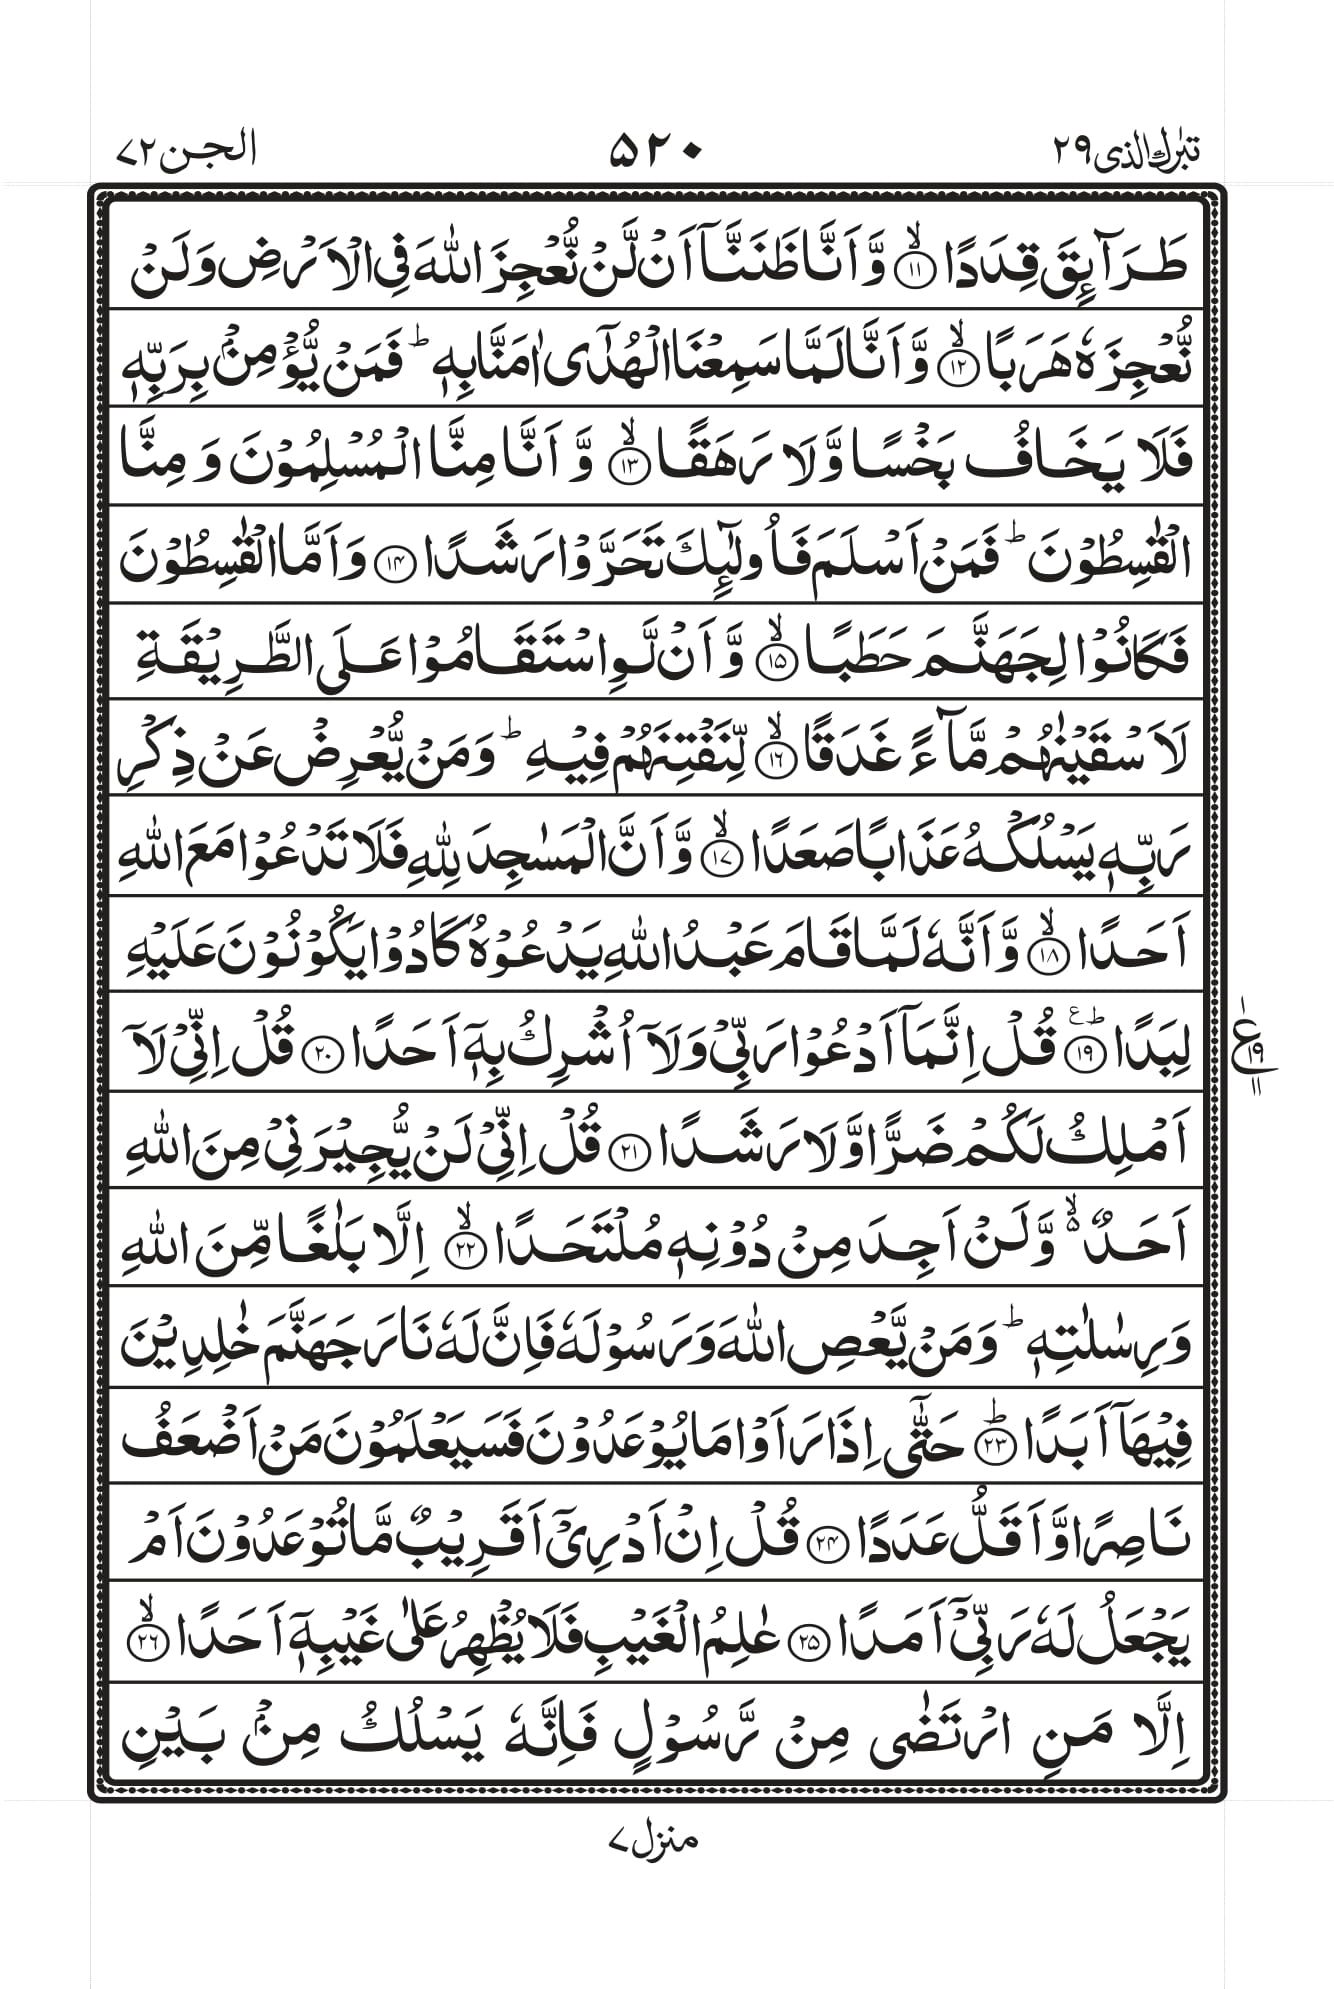 تبٰرك الذى ٢٩ ٥٢٠ الجن ٧٢
طَرَآئِقَ قِدَدًا ۙ﴿١١﴾ وَّاَنَّا ظَنَنَّاۤ اَنْ لَّنْ نُّعْجِزَ اللّٰهَ فِى الْاَرْضِ وَلَنْ
نُّعْجِزَهٗ هَرَبًا ۙ﴿١٢﴾ وَّاَنَّا لَمَّا سَمِعْنَا الْهُدٰٓى اٰمَنَّا بِهٖ ؕ فَمَنْ يُّؤْمِنْۢ بِرَبِّهٖ
فَلَا يَخَافُ بَخْسًا وَّلَا رَهَقًا ۙ﴿١٣﴾ وَّاَنَّا مِنَّا الْمُسْلِمُوْنَ وَمِنَّا
الْقٰسِطُوْنَ ؕ فَمَنْ اَسْلَمَ فَاُولٰٓئِكَ تَحَرَّوْا رَشَدًا ﴿١٤﴾ وَاَمَّا الْقٰسِطُوْنَ
فَكَانُوْا لِجَهَنَّمَ حَطَبًا ۙ﴿١٥﴾ وَّاَنْ لَّوِاسْتَقَامُوْا عَلَى الطَّرِيْقَةِ
لَاَسْقَيْنٰهُمْ مَّآءً غَدَقًا ۙ﴿١٦﴾ لِّنَفْتِنَهُمْ فِيْهِ ؕ وَمَنْ يُّعْرِضْ عَنْ ذِكْرِ
رَبِّهٖ يَسْلُكْهُ عَذَابًا صَعَدًا ۙ﴿١٧﴾ وَّاَنَّ الْمَسٰجِدَ لِلّٰهِ فَلَا تَدْعُوْا مَعَ اللّٰهِ
اَحَدًا ۙ﴿١٨﴾ وَّاَنَّهٗ لَمَّا قَامَ عَبْدُ اللّٰهِ يَدْعُوْهُ كَادُوْا يَكُوْنُوْنَ عَلَيْهِ
لِبَدًا ؕع﴿١٩﴾ قُلْ اِنَّمَاۤ اَدْعُوْا رَبِّىْ وَلَاۤ اُشْرِكُ بِهٖۤ اَحَدًا ﴿٢٠﴾ قُلْ اِنِّىْ لَاۤ
ع ١٩ ١١
اَمْلِكُ لَكُمْ ضَرًّا وَّلَا رَشَدًا ﴿٢١﴾ قُلْ اِنِّىْ لَنْ يُّجِيْرَنِىْ مِنَ اللّٰهِ
اَحَدٌ ۙ۬ وَّلَنْ اَجِدَ مِنْ دُوْنِهٖ مُلْتَحَدًا ۙ﴿٢٢﴾ اِلَّا بَلٰغًا مِّنَ اللّٰهِ
وَرِسٰلٰتِهٖ ؕ وَمَنْ يَّعْصِ اللّٰهَ وَرَسُوْلَهٗ فَاِنَّ لَهٗ نَارَ جَهَنَّمَ خٰلِدِيْنَ
فِيْهَاۤ اَبَدًا ؕ﴿٢٣﴾ حَتّٰٓى اِذَا رَاَوْا مَا يُوْعَدُوْنَ فَسَيَعْلَمُوْنَ مَنْ اَضْعَفُ
نَاصِرًا وَّاَقَلُّ عَدَدًا ﴿٢٤﴾ قُلْ اِنْ اَدْرِىْۤ اَقَرِيْبٌ مَّا تُوْعَدُوْنَ اَمْ
يَجْعَلُ لَهٗ رَبِّىْۤ اَمَدًا ﴿٢٥﴾ عٰلِمُ الْغَيْبِ فَلَا يُظْهِرُ عَلٰى غَيْبِهٖۤ اَحَدًا ۙ﴿٢٦﴾
اِلَّا مَنِ ارْتَضٰى مِنْ رَّسُوْلٍ فَاِنَّهٗ يَسْلُكُ مِنْۢ بَيْنِ
منزل ٧